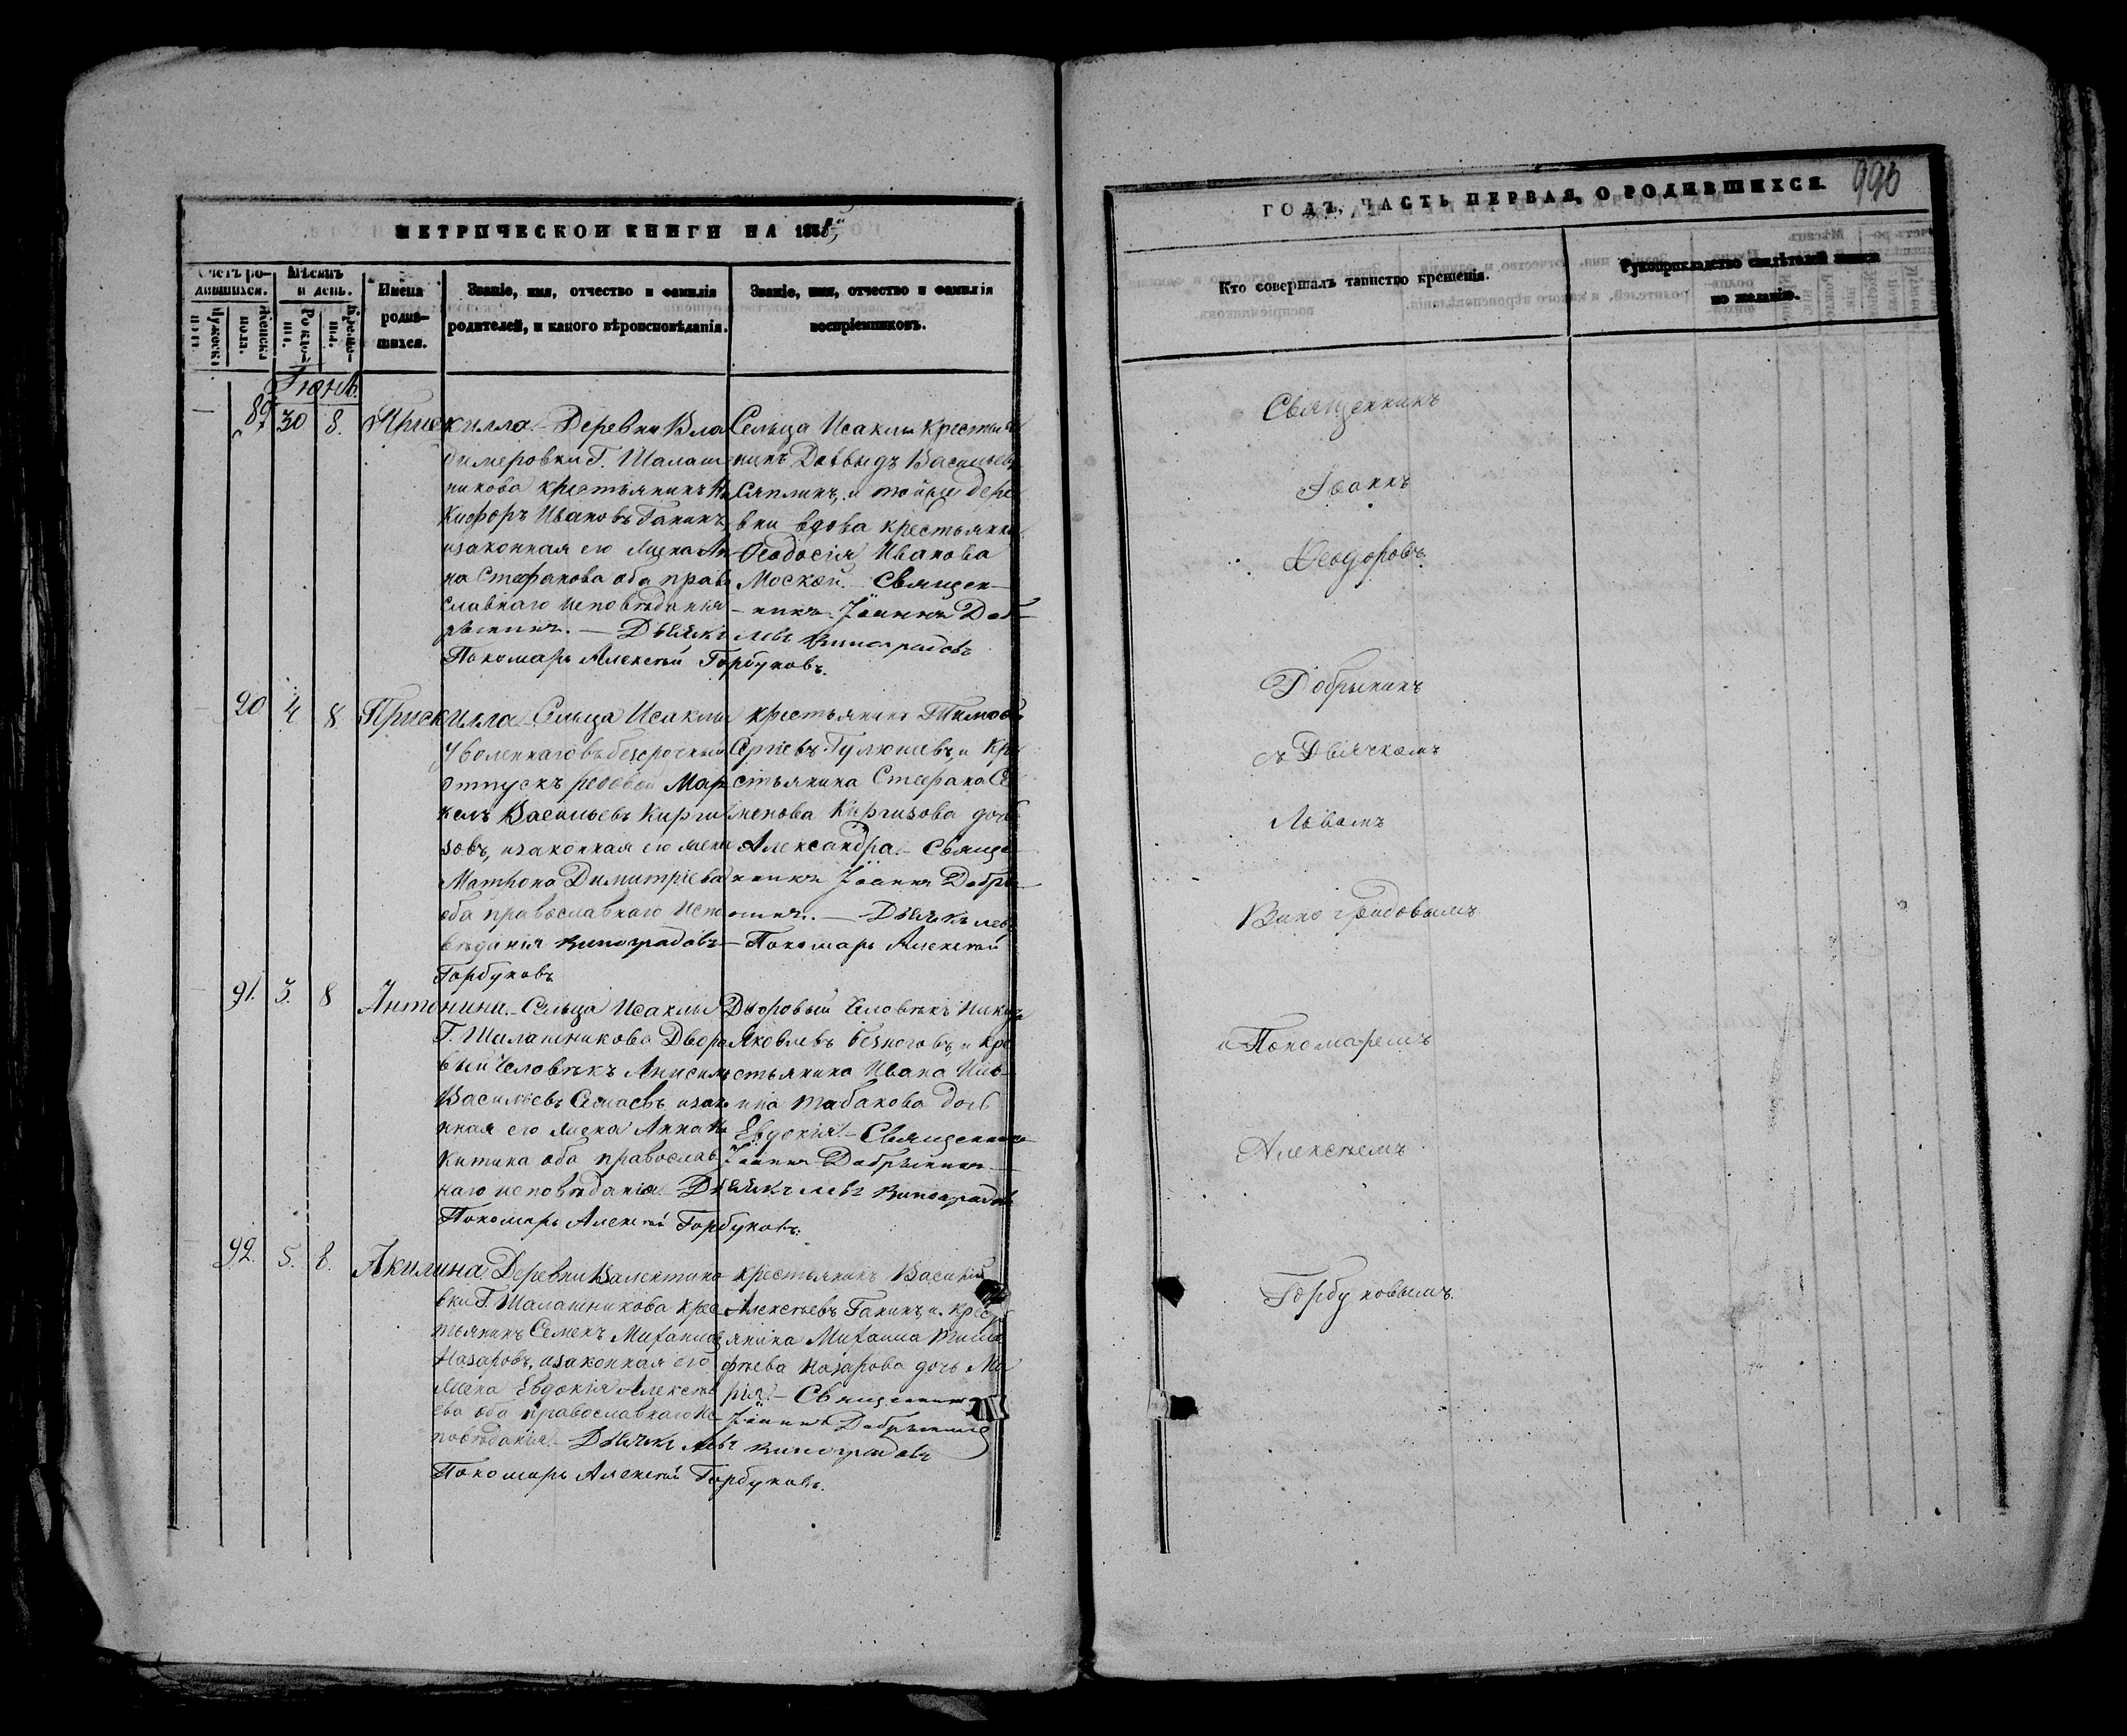 МЕТРИЧЕСКОЙ КНИГИ НА 185
Счетъ ро-
дившихся.
Мѣсяцъ
и день.
Имена
родив-
шихся.
Званіе, имя, отчество и фамилія
родителей, и какого вѣроисповѣданія.
Званіе, имя, отчество и фамилія
воспріемниковъ.
Мужеска
пола.
Женска
пола.
Рожде-
нія.
Креще-
нія.
Іюнь.
89. 30 8. Прискилла. Деревни Вла
димеровки Г. Шалаш
никова крестьянинъ Ни
кифоръ Ивановъ Ганинъ,
и законная его жена Ан
на Стефанова оба право
славнаго исповѣданія
Сельца Исаклы крестья
нинъ Давыдъ Васильевъ
Сяплинъ, и той же дере
вни вдова крестьянка
Ѳеодосія Иванова
Моской. Священ-
никъ Іоаннъ Доб-
рынинъ. — Дьячекъ Левъ Виноградовъ
Пономарь Алексѣй Горбуновъ.
90 4 8. Прискилла. Сельца Исаклы
Уволеннаго въ безсрочный
отпускъ рядовой Мар
келъ Васильевъ Кирги
зовъ, и законная его жена
Матрона Димитріева
оба православнаго испо
вѣданія
крестьянинъ Тимоѳей
Сергіевъ Гулюшевъ, и кре
стьянина Стефана Се
менова Киргизова дочь
Александра. — Священ
никъ Іоаннъ Добры
нинъ. — Дьячекъ Левъ
Виноградовъ — Пономарь Алексѣй
Горбуновъ
91. 3. 8 Антонина. Сельца Исаклы
Г. Шалашникова Дворо
вый человѣкъ Анисимъ
Васильевъ и зако
нная его жена Анна Ни
китина оба православ
наго исповѣданія.
Дворовый человѣкъ
Яковлевъ Безноговъ, и кре
стьянина Ивана
Табакова дочь
Евдокія. — Священникъ
Іоаннъ Добрынинъ —
Дьячекъ Левъ Виноградовъ
Пономарь Алексѣй Горбуновъ.
92. 5. 8. Акилина. Деревни Валентино
вки Г. Шалашникова крес
тьянинъ Семенъ Михаиловъ
Назаровъ, и законная его
жена Евдокія Алексѣ
ева оба православнаго ис
повѣданія.
крестьянинъ Василій
Алексѣевъ Ганинъ, и крест
янина Михаила Тимо
фѣева Назарова дочь Ма
рія. — Священникъ
Іоаннъ Добрынинъ
Дьячекъ Левъ Виноградовъ
Пономарь Алексѣй Горбуновъ.
ГОДЪ, ЧАСТЬ ПЕРВАЯ, О РОДИВШИХСЯ.
990
Кто совершалъ таинство крещенія.
Рукоприкладство свидѣтелей записи
по желанію.
Священникъ
Іоаннъ
Ѳеодоровъ
Добрынинъ
съ Дьячкомъ
Львомъ
Виноградовымъ
и Пономаремъ
Алексѣемъ
Горбуновымъ.